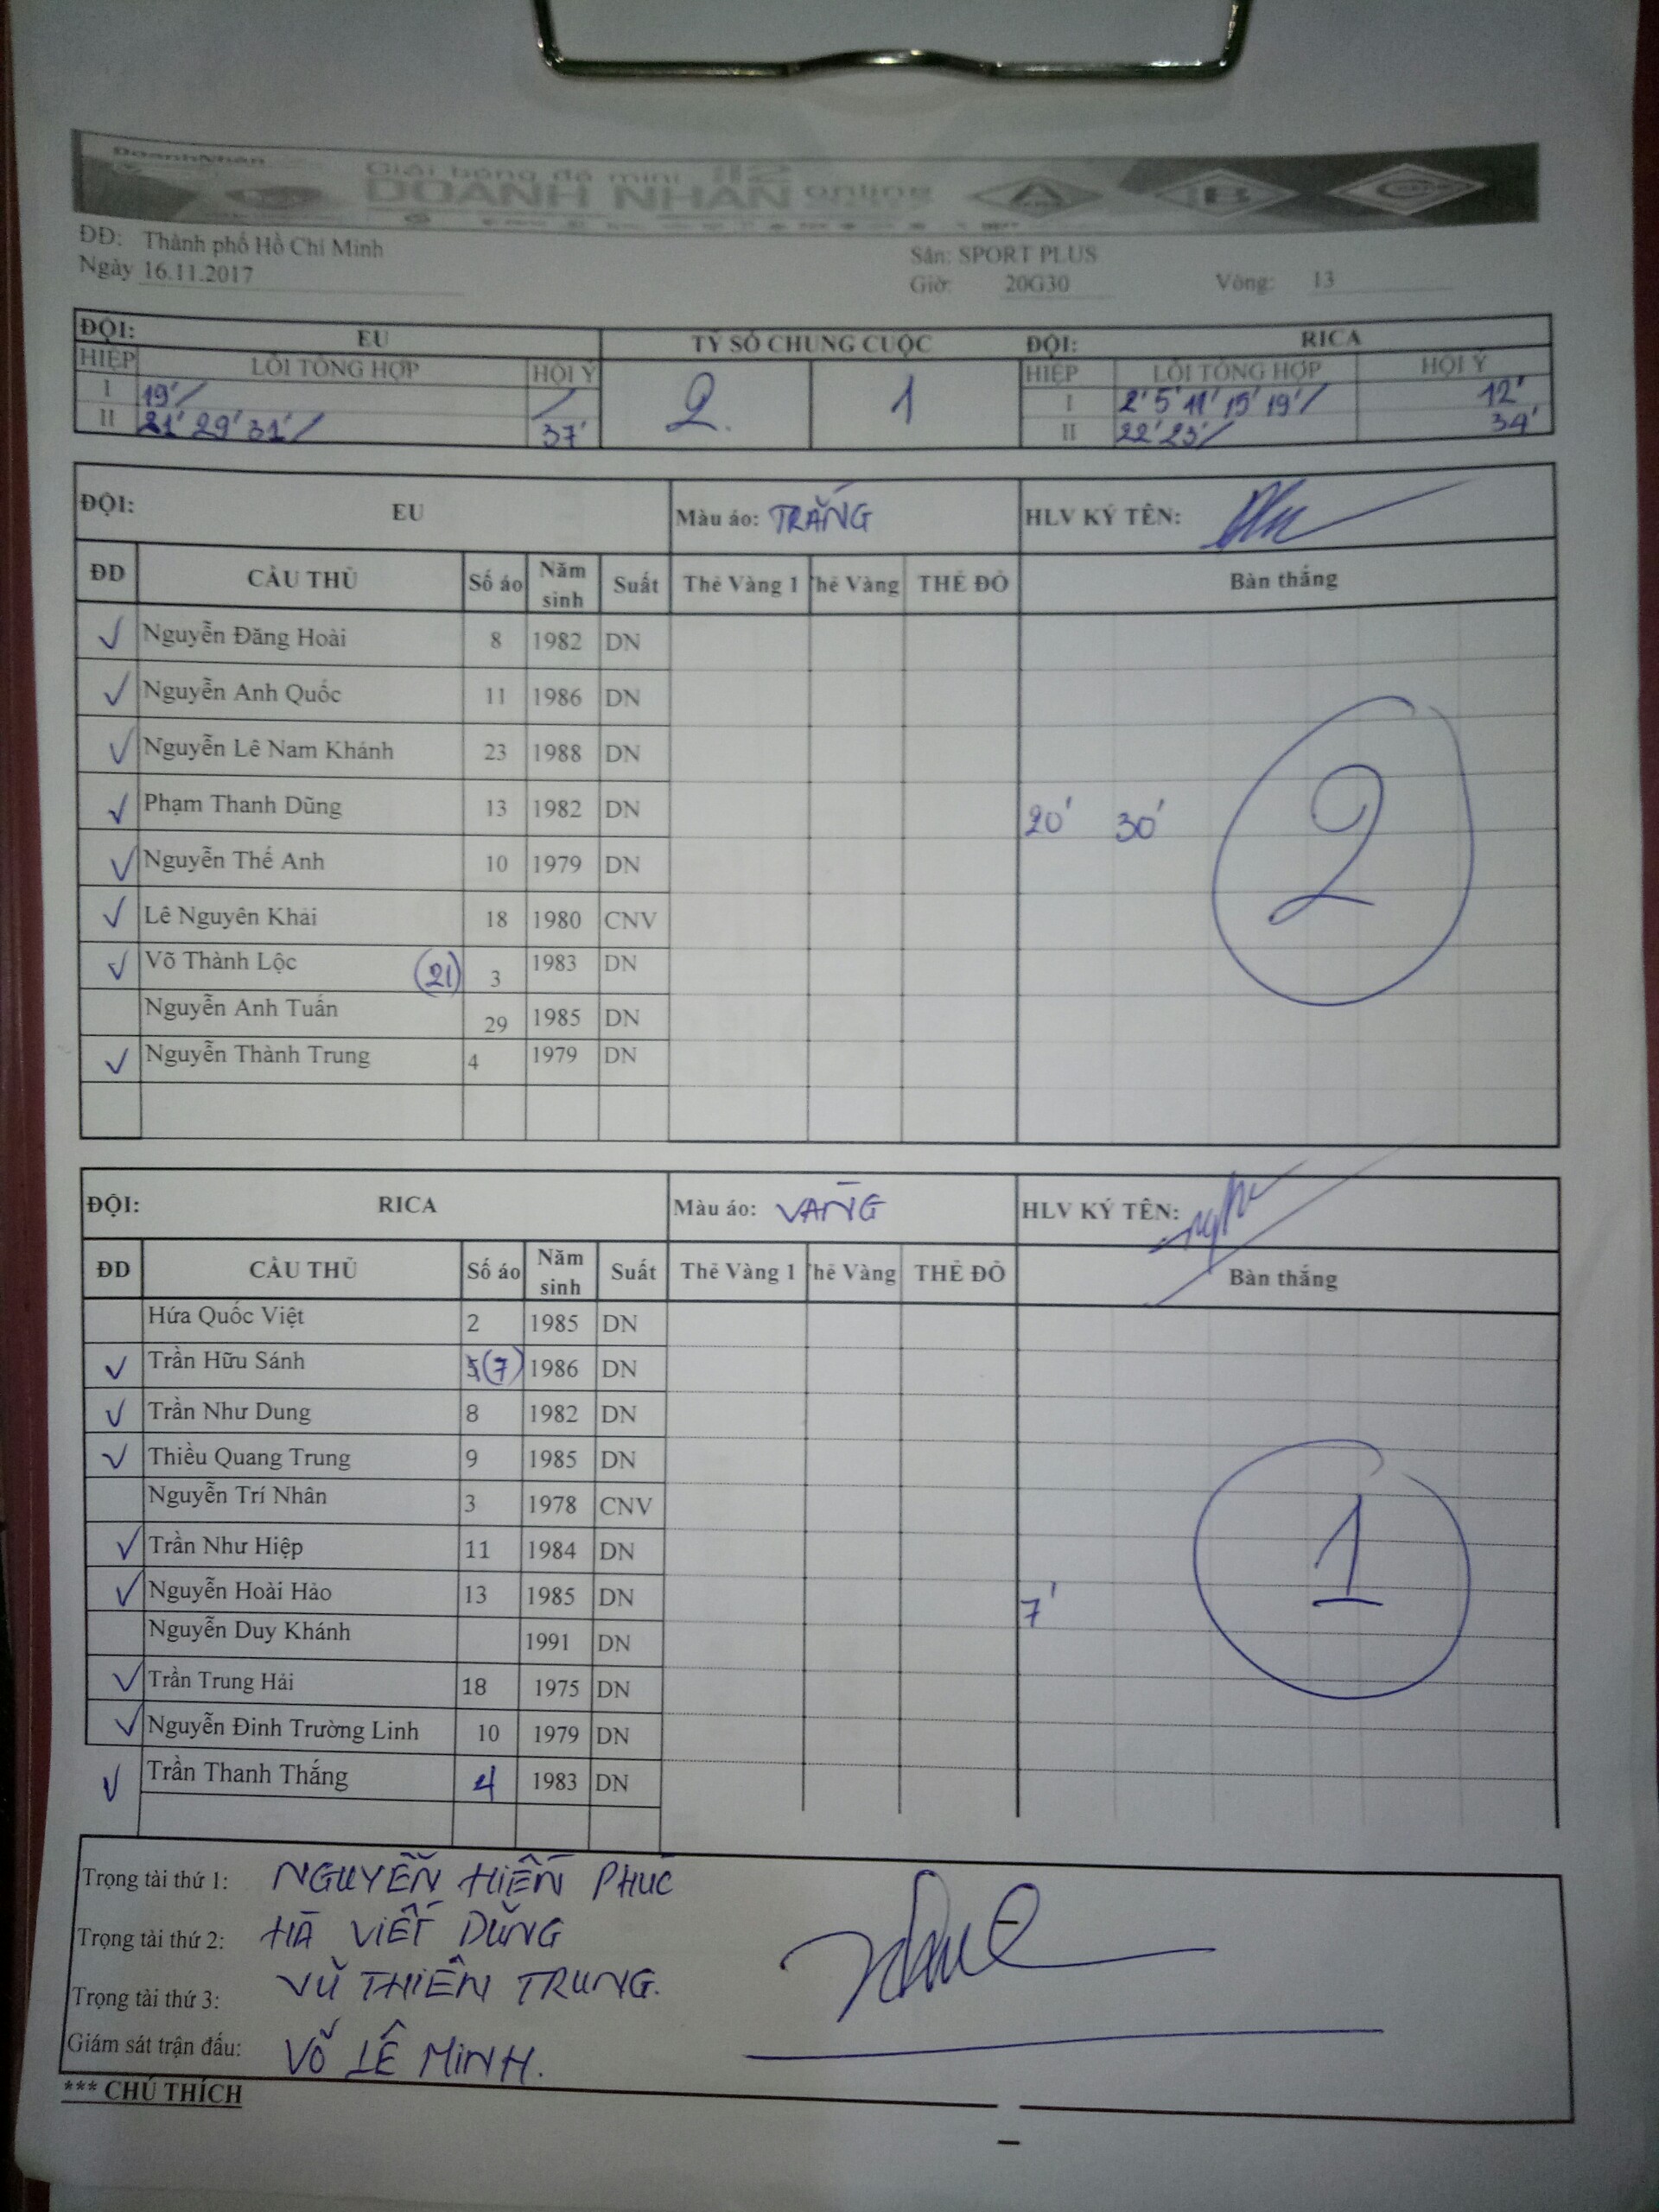 DoanhNhân
Giải bóng đá mini 112
DOANH NHÂN online
A B C
ĐĐ: Thành phố Hồ Chí Minh
Sân: SPORT PLUS
Ngày 16.11.2017
Giờ: 20G30 Vòng: 13
ĐỘI: EU TỶ SỐ CHUNG CUỘC ĐỘI: RICA
HIỆP LỖI TỔNG HỢP HỘI Ý 2 1 HIỆP LỖI TỔNG HỢP HỘI Ý
I 19' / / I 2' 5' 11' 15' 19' / 12'
II 21' 29' 31' / 37' II 22' 23' / 34'
ĐỘI: EU Màu áo: TRẮNG HLV KÝ TÊN:
ĐD CẦU THỦ Số áo Năm sinh Suất Thẻ Vàng 1 hẻ Vàng THẺ ĐỎ Bàn thắng
✓ Nguyễn Đăng Hoài 8 1982 DN
✓ Nguyễn Anh Quốc 11 1986 DN
✓ Nguyễn Lê Nam Khánh 23 1988 DN
✓ Phạm Thanh Dũng 13 1982 DN 20' 30' 2
✓ Nguyễn Thế Anh 10 1979 DN
✓ Lê Nguyên Khải 18 1980 CNV
✓ Võ Thành Lộc (21) 3 1983 DN
Nguyễn Anh Tuấn 29 1985 DN
✓ Nguyễn Thành Trung 4 1979 DN
ĐỘI: RICA Màu áo: VÀNG HLV KÝ TÊN:
ĐD CẦU THỦ Số áo Năm sinh Suất Thẻ Vàng 1 hẻ Vàng THẺ ĐỎ Bàn thắng
Hứa Quốc Việt 2 1985 DN
✓ Trần Hữu Sánh 5 (7) 1986 DN
✓ Trần Như Dung 8 1982 DN
✓ Thiều Quang Trung 9 1985 DN
Nguyễn Trí Nhân 3 1978 CNV
✓ Trần Như Hiệp 11 1984 DN 1
✓ Nguyễn Hoài Hảo 13 1985 DN 7'
Nguyễn Duy Khánh 1991 DN
✓ Trần Trung Hải 18 1975 DN
✓ Nguyễn Đinh Trường Linh 10 1979 DN
✓ Trần Thanh Thắng 4 1983 DN
Trọng tài thứ 1: NGUYỄN HIỀN PHUC
Trọng tài thứ 2: HÀ VIẾT DŨNG
Trọng tài thứ 3: VŨ THIÊN TRUNG.
Giám sát trận đấu: VÕ LÊ MINH.
*** CHÚ THÍCH